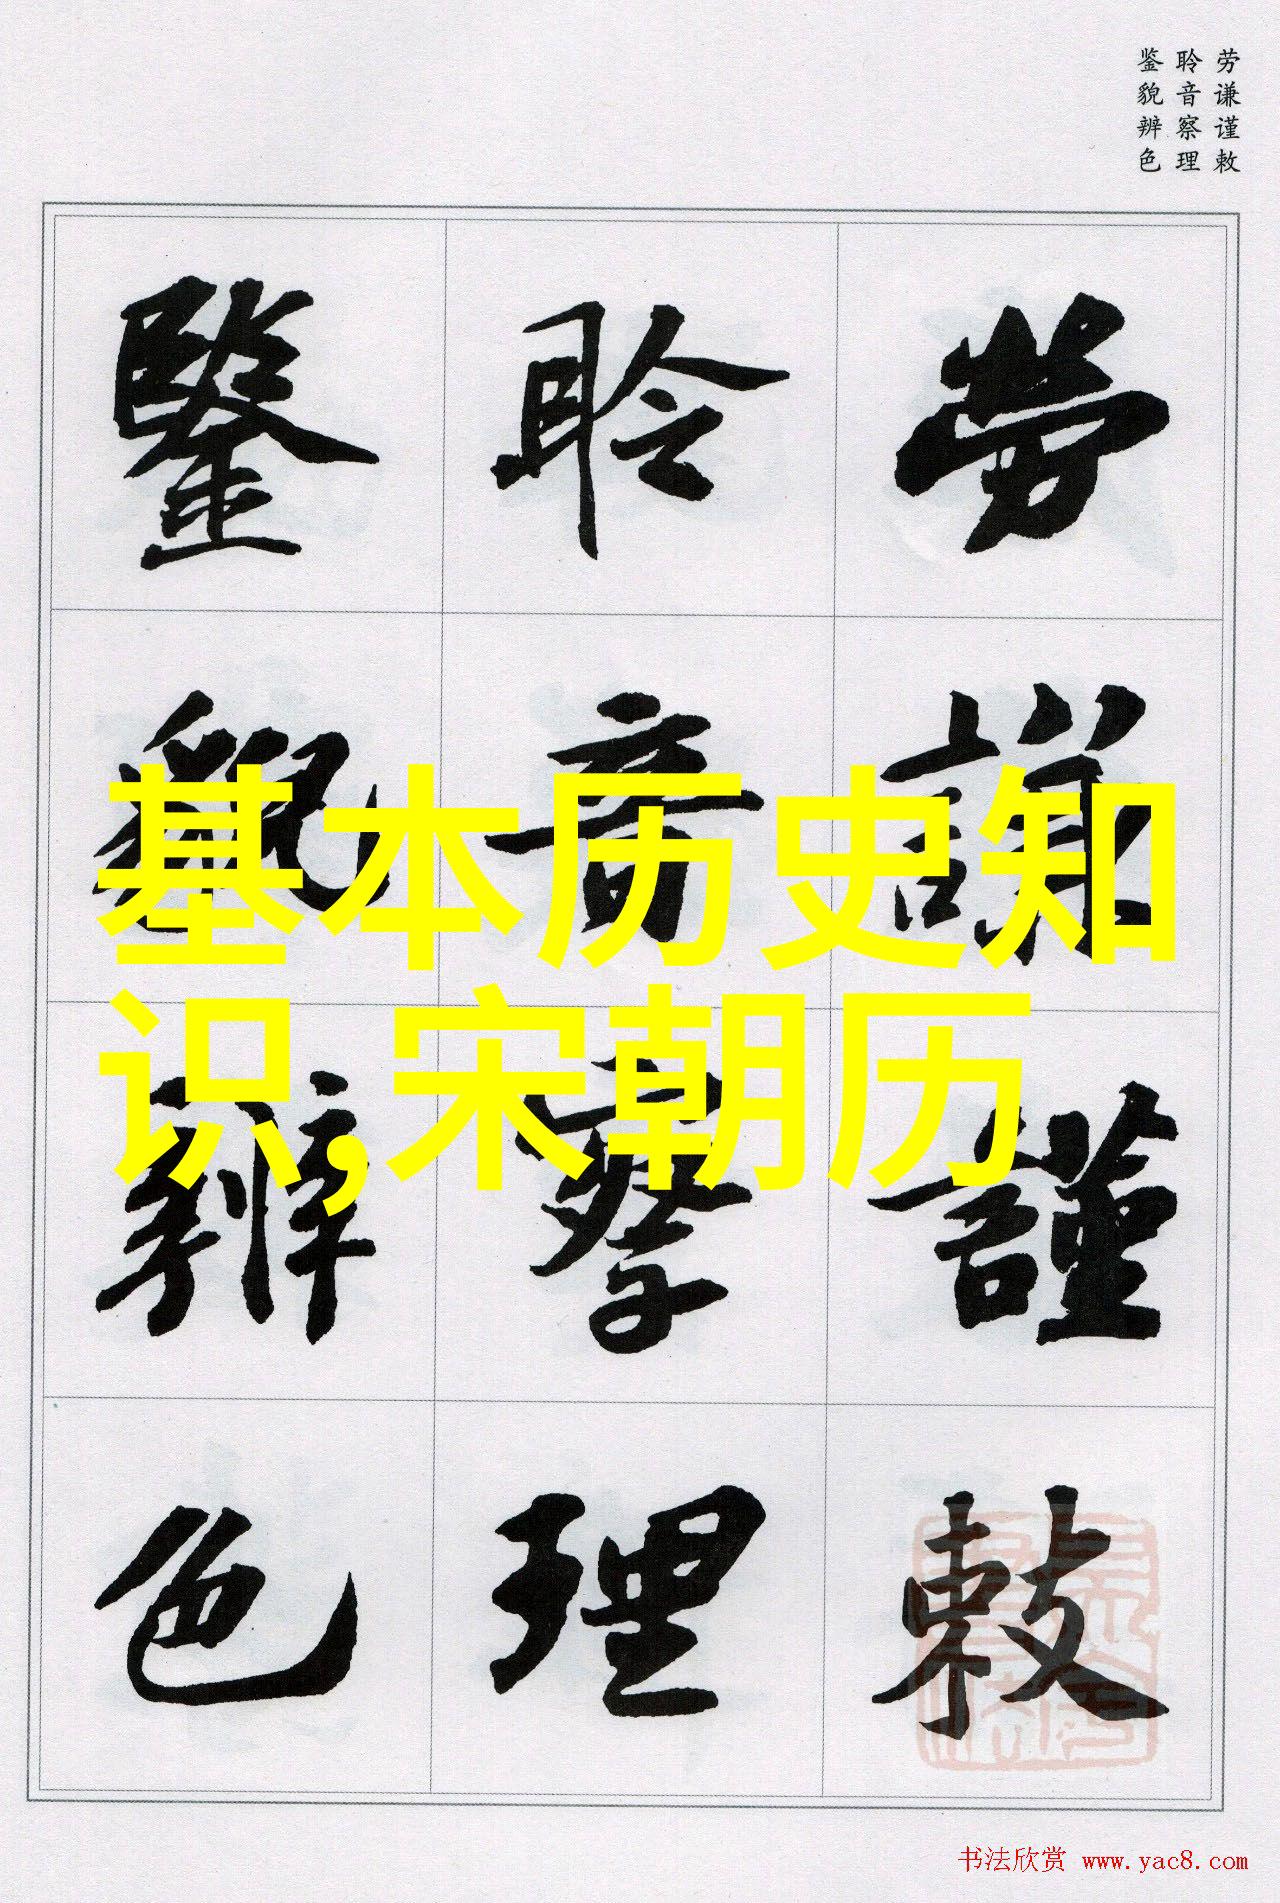 劳谦谨敕
聆音察理
鉴貌辨色
勞謙謹敕
聆音察理
鑒貌辨色
基本历史知
识,宋朝历
书法欣赏 www.yac8.com